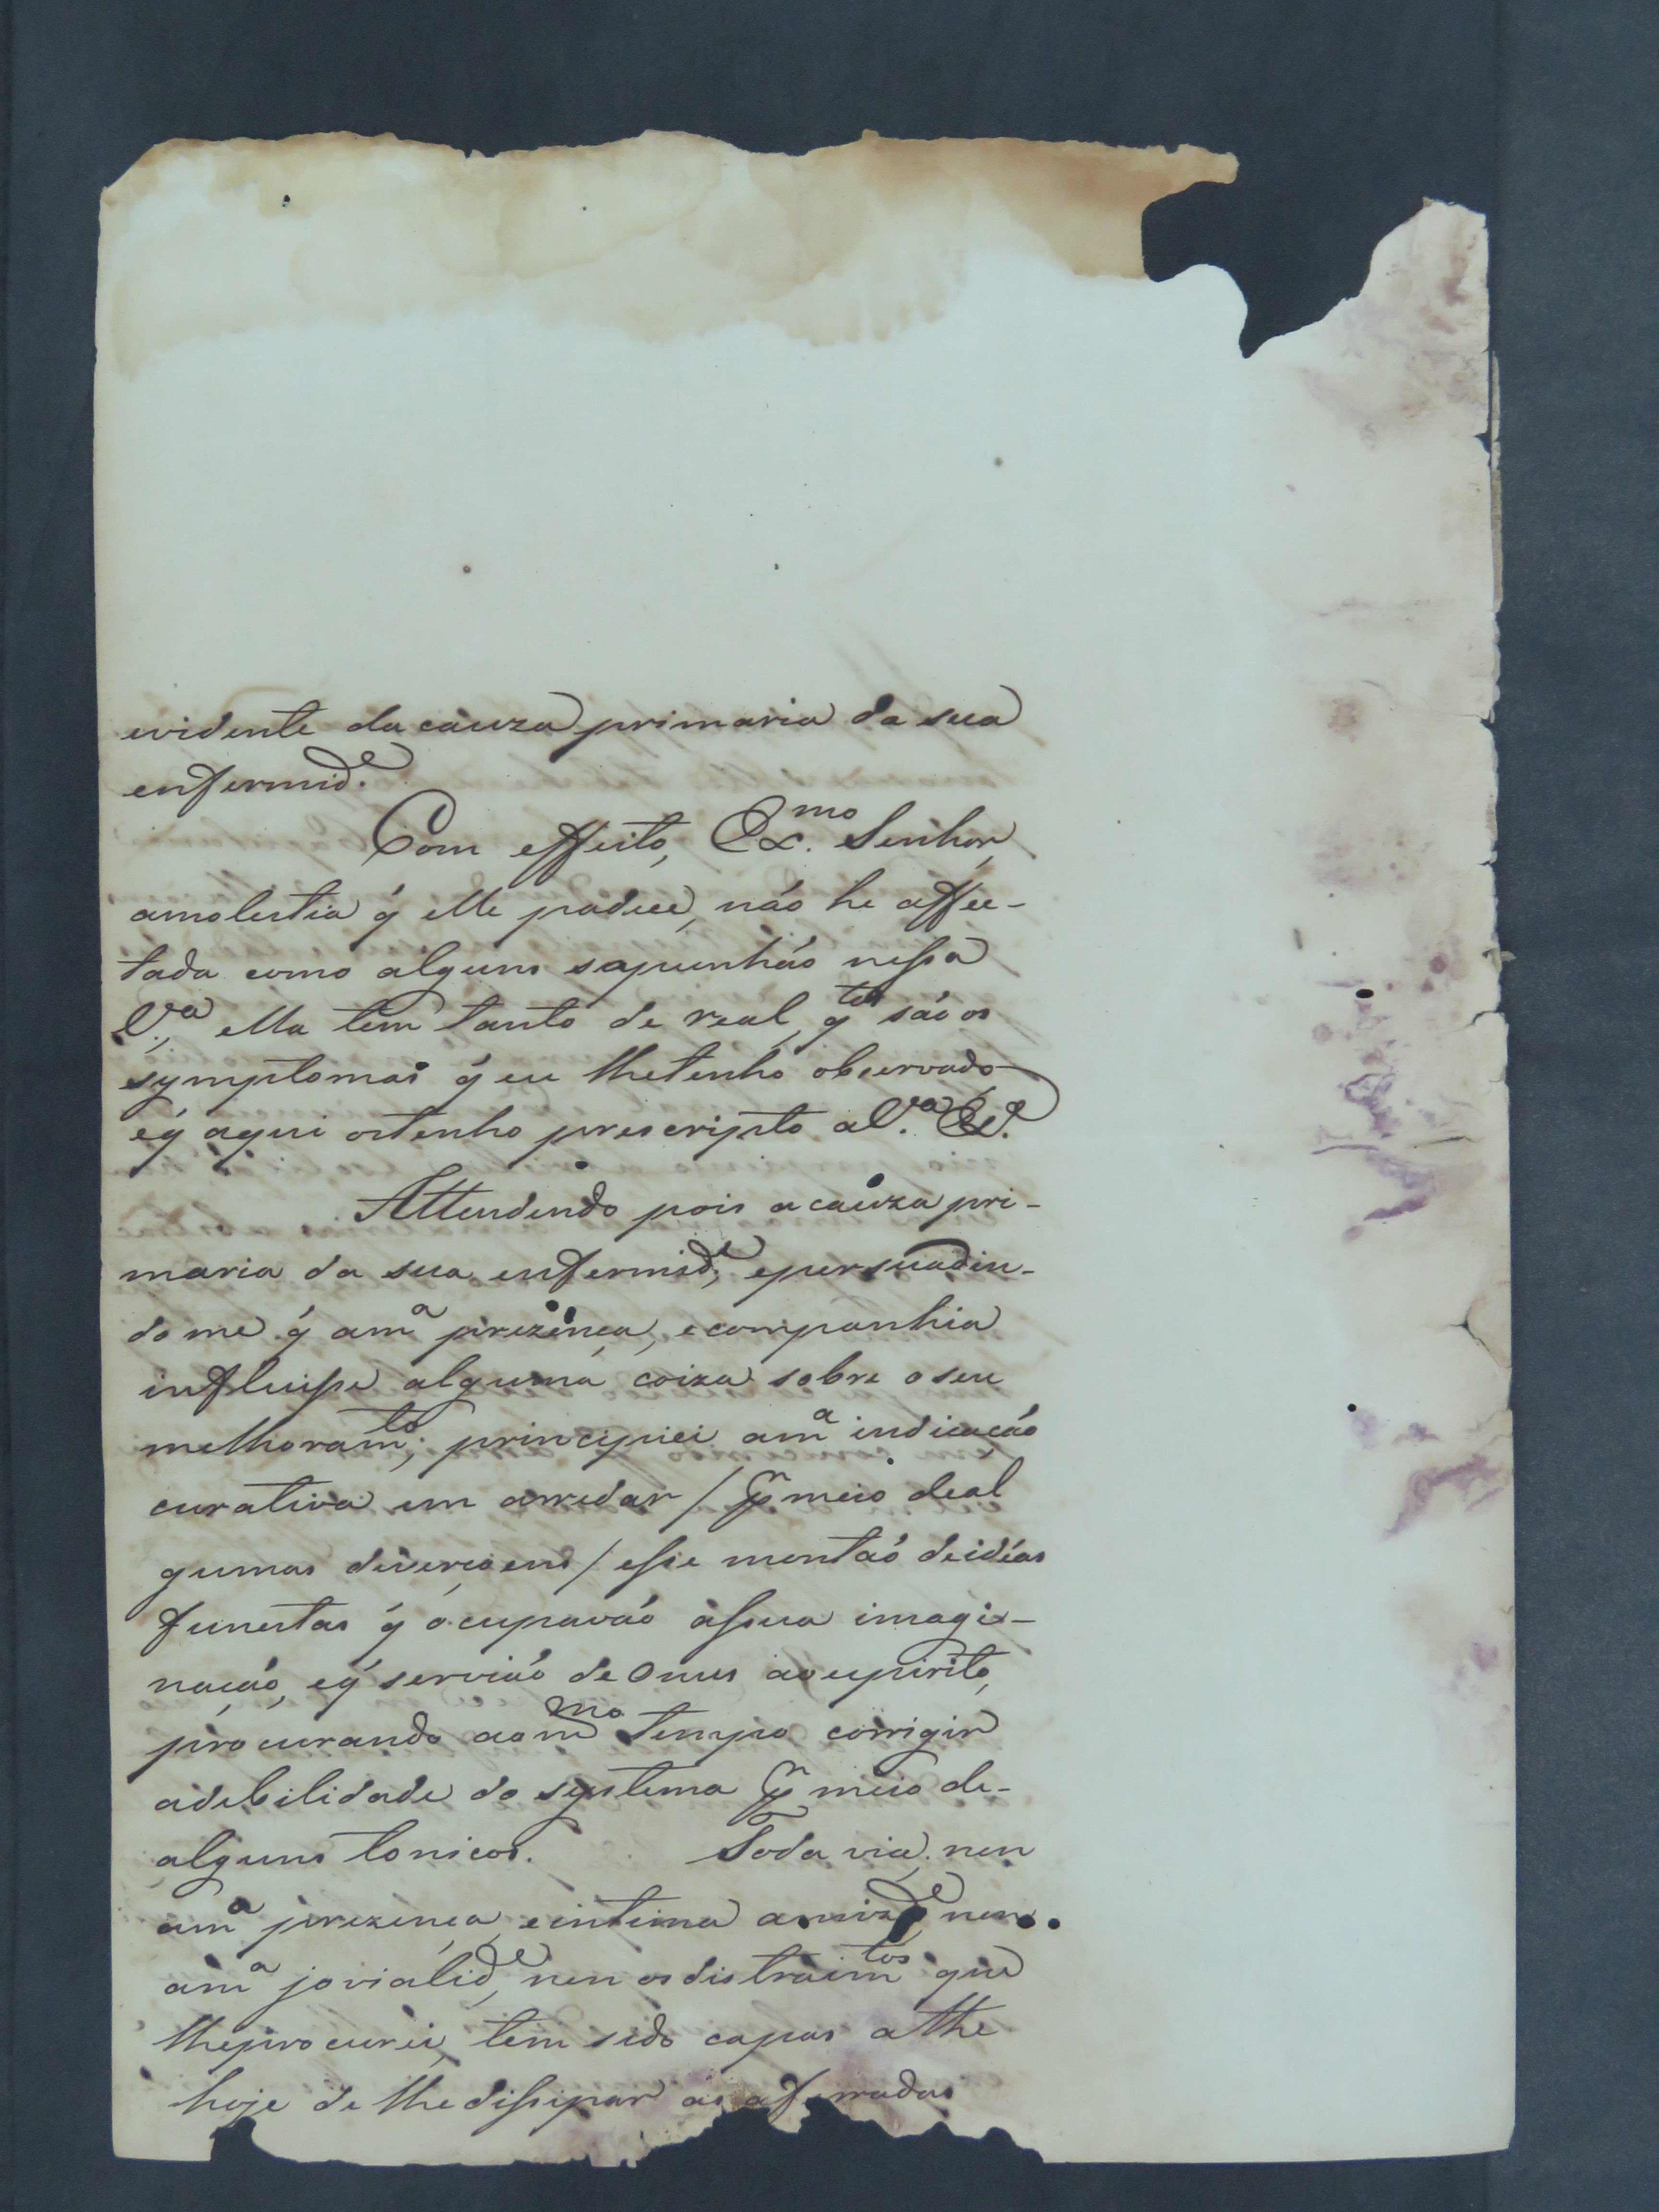 evidente da cauza primaria da sua
enfermid.e
Com effeito, Ex.mo Senhor,
amolestia q̃ elle padece, não he affec-
tada como alguns sopunhão nessa
V.a, ella tem tanto de real, q.tos são os
symptomas q̃ eu lhetenho observado
eq̃ aqui ostenho prescripto aV.a Ex.a
Attendendo pois a cauza pri-
maria da sua enfermid.e, epersuadin-
do me q̃ am.a prezença, ecompanhia
influisse alguma coiza sobre o seu
melhoram.to; principiei am.a indicação
curativa em arredar / pr meio deal
gumas diverçoens / esse montaó deidéas
funestas q̃ ocupavaó assua imagi-
nação, eq̃ servião de Onus aoespirito,
procurando aom.mo tempo corrigir
adebilidade do systema pr meio de-
alguns tonicos. Toda via, nen
am.a prezença, eintima amizd.e, nen
am.a jovialid.e, nen osdistraim.tos que
lheprocurei, tem sido capas athe
hoje de lhedissipar as aferradas